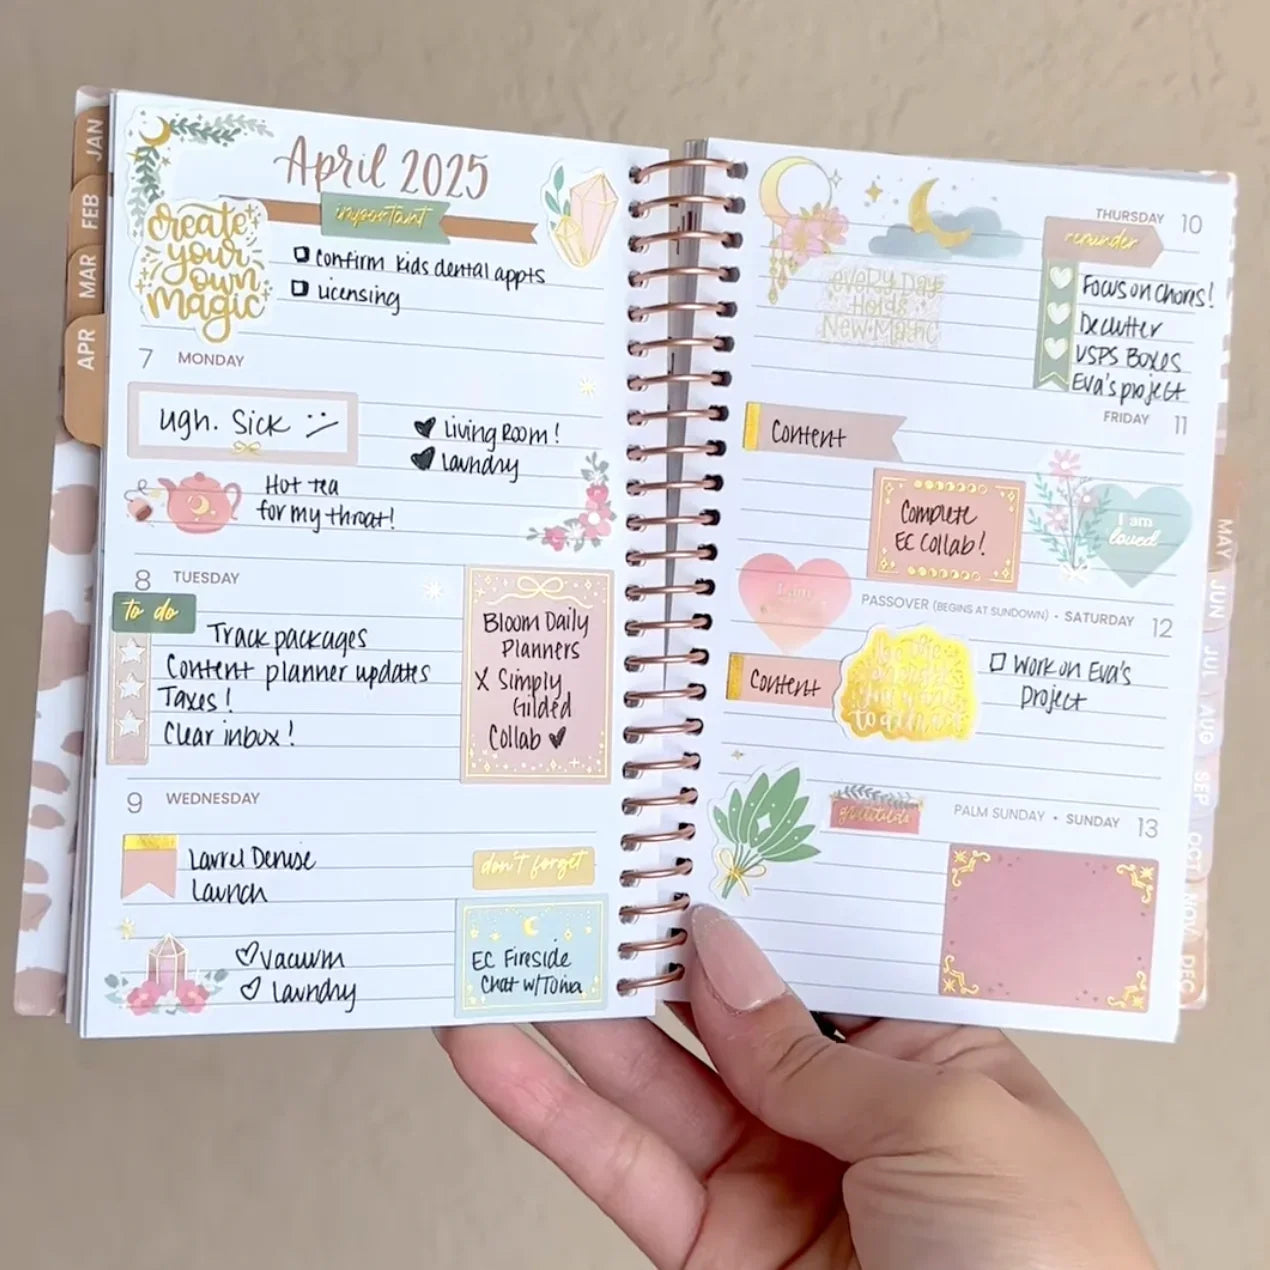 JAN
FEB
MAR
APR
April 2025
important
create
your
own
magic
Confirm kids dental appts
Licensing
7 MONDAY
ugh. Sick
Living Room!
Laundry
Hot tea
for my throat!
8 TUESDAY
to do
Track packages
Content planner updates
Taxes!
Clear inbox!
Bloom Daily
Planners
X Simply
Gilded
Collab
9 WEDNESDAY
Laurel Denise
Launch
don't forget
Vacuum
Laundry
EC Fireside
Chat w/Tonia
THURSDAY 10
reminder
every Day
Holds
New Magic
Focus on Chores!
Declutter
USPS Boxes
Eva's project
FRIDAY 11
Content
Complete
EC Collab!
I am
loved
I am
PASSOVER (BEGINS AT SUNDOWN) • SATURDAY 12
Content
be the
Work on Eva's
Project
gratitude
PALM SUNDAY • SUNDAY 13
MAY
JUN
JUL
AUG
SEP
OCT
NOV
DEC